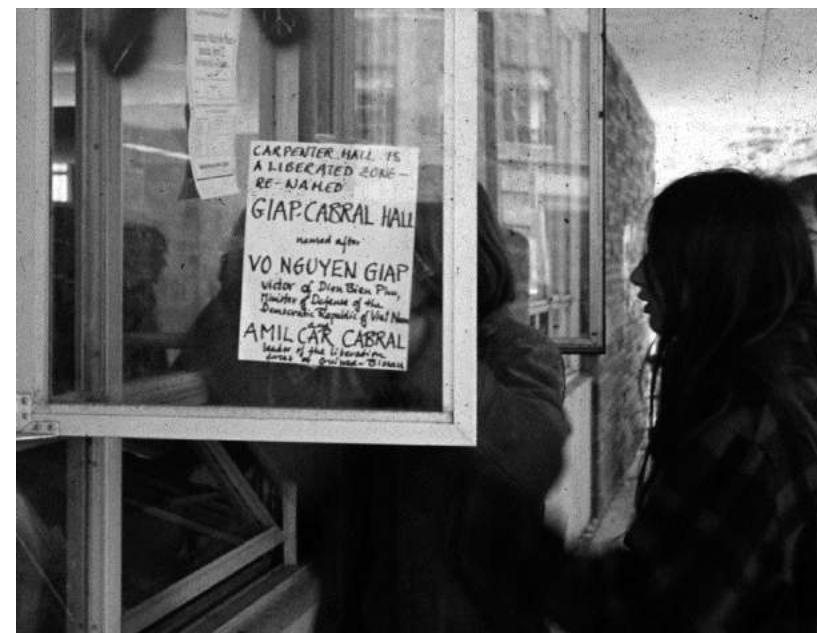 CARPENTER HALL IS
A LIBERATED ZONE-
RE-NAMED
GIAP-CABRAL HALL
named after
VO NGUYEN GIAP
victor of Dien Bien Phu,
Minister of Defense of the
Democratic Republic of Viet Nam
and
AMILCAR CABRAL
leader of the liberation
forces of Guinea-Bissau